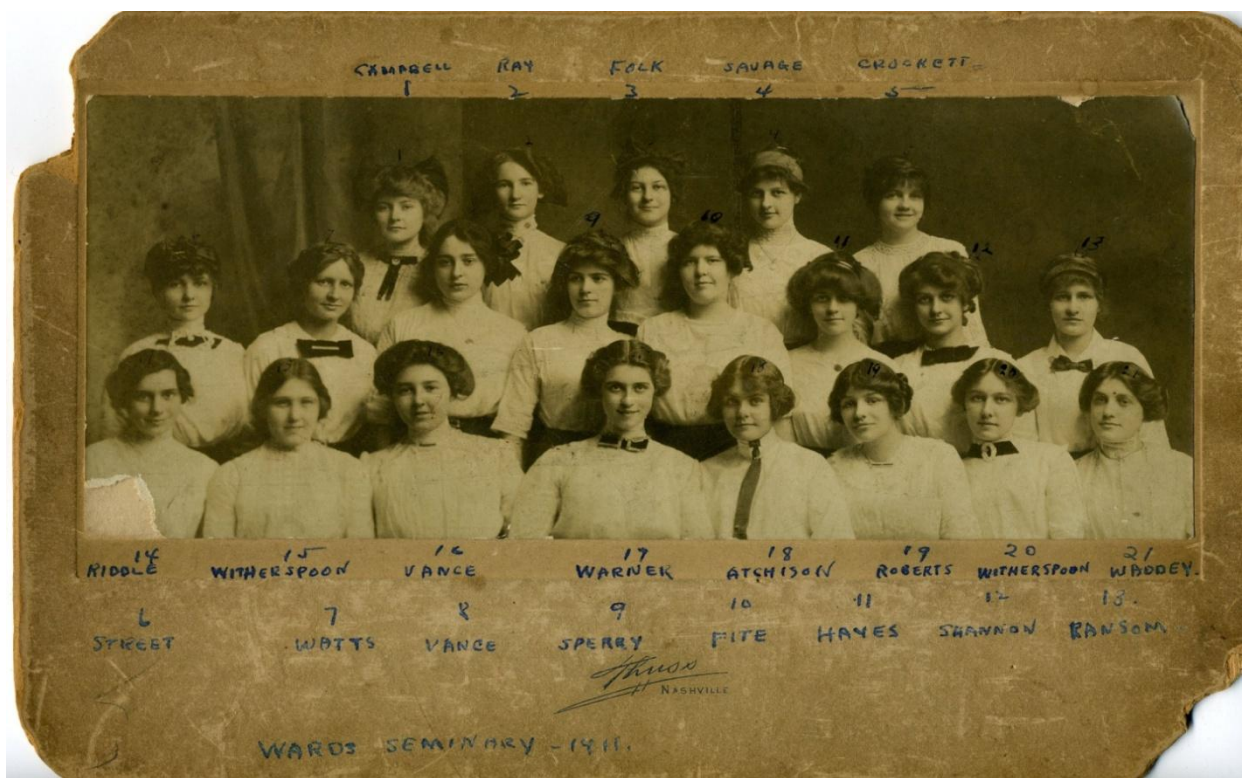 CAMPBELL RAY FOLK SAVAGE CROCKETT
1 2 3 4 5
9 10 11 12 13
14 15 16 17 18 19 20 21
RIDDLE WITHERSPOON VANCE WARNEK ATCHISON ROBERTS WITHERSPOON WADDEY.
6 7 8 9 10 11 12 13.
STREET WATTS VANCE SPERRY FITE HAYES SHANNON RANSOM
Thuss
NASHVILLE
WARDS SEMINARY - 1911.